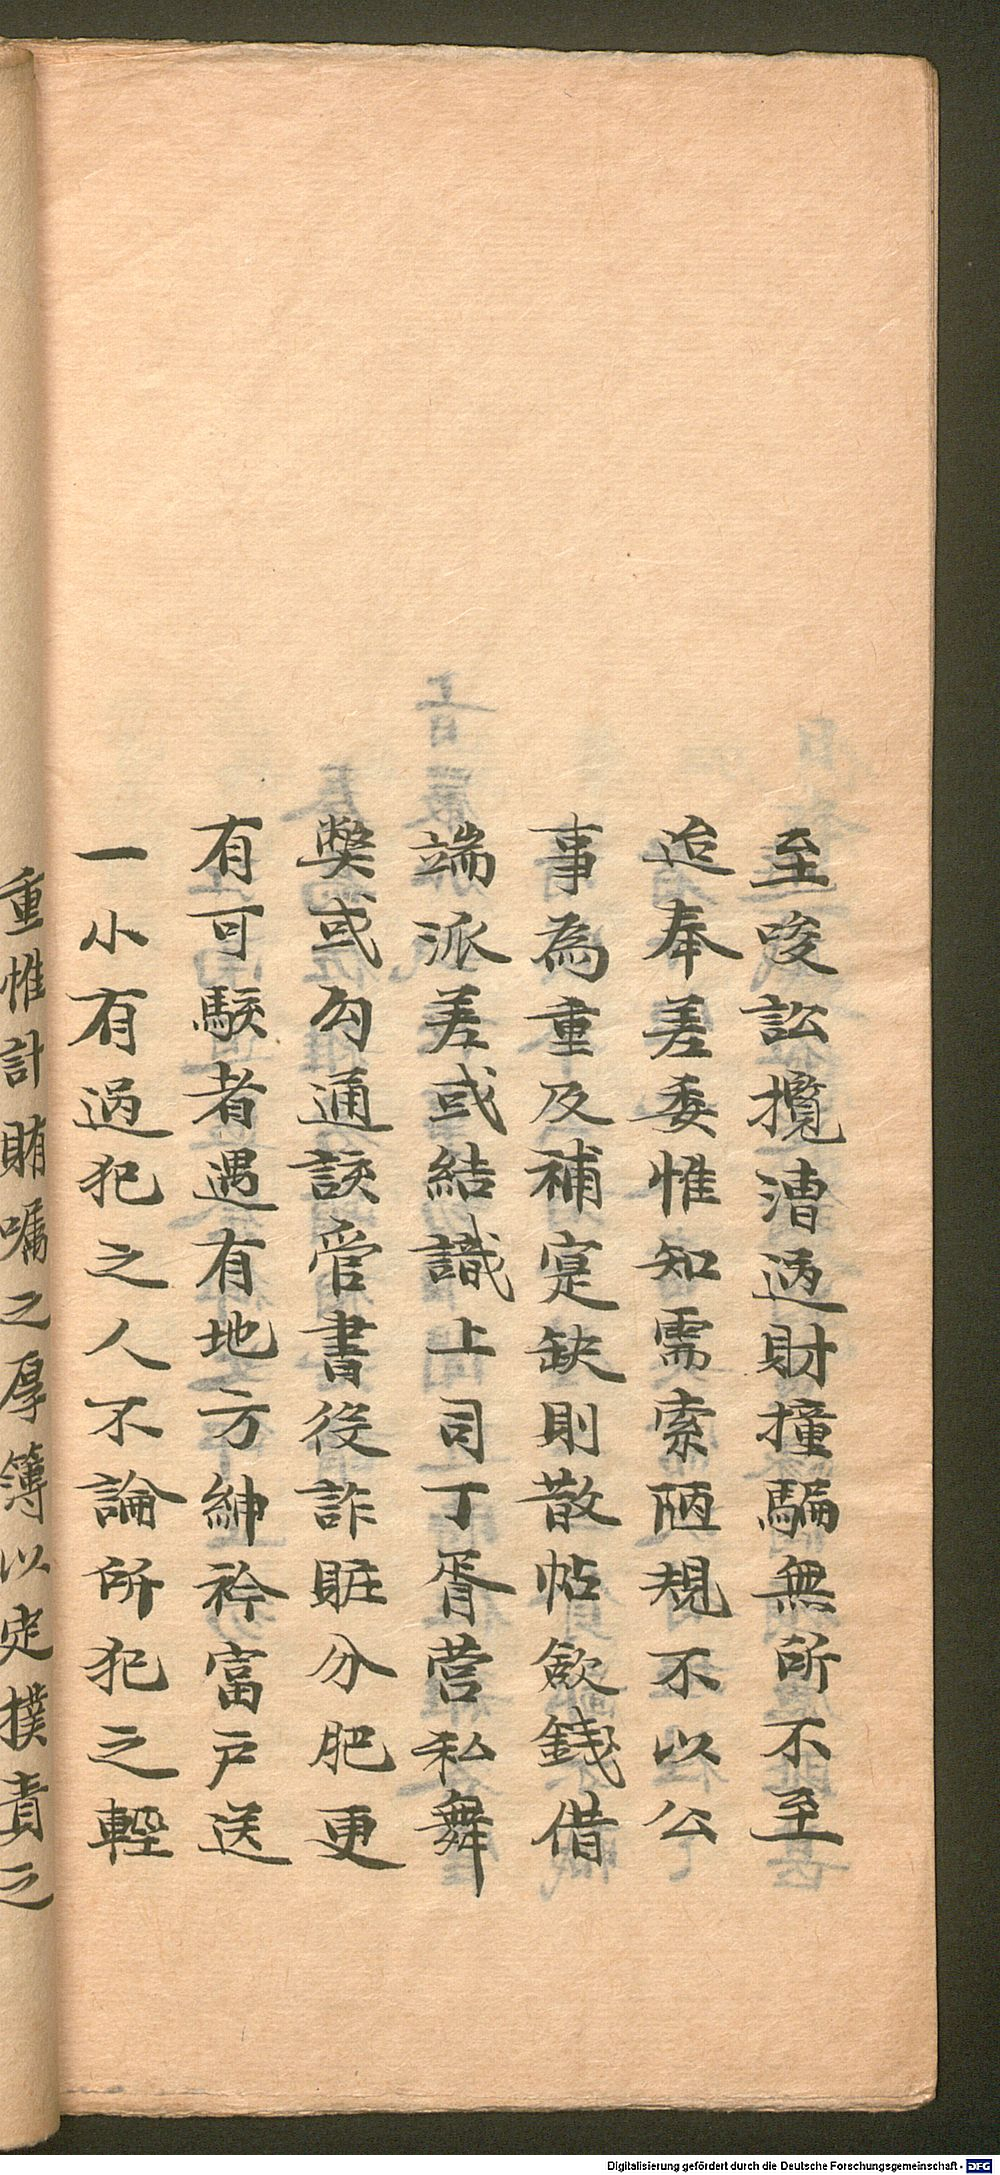 至唆訟攬漕遇財撞騙無所不至
迨奉差委惟知需索陋規不以公
事為重及補寔缺則散帖歛錢借
端派差或結識上司丁胥营私舞
獘或勾通該管書役詐賍分肥更
有可駭者遇有地方紳衿富戶送
一小有過犯之人不論所犯之輕
重惟計賄嘱之厚簿以定撲責之
Digitalisierung gefördert durch die Deutsche Forschungsgemeinschaft - DFG